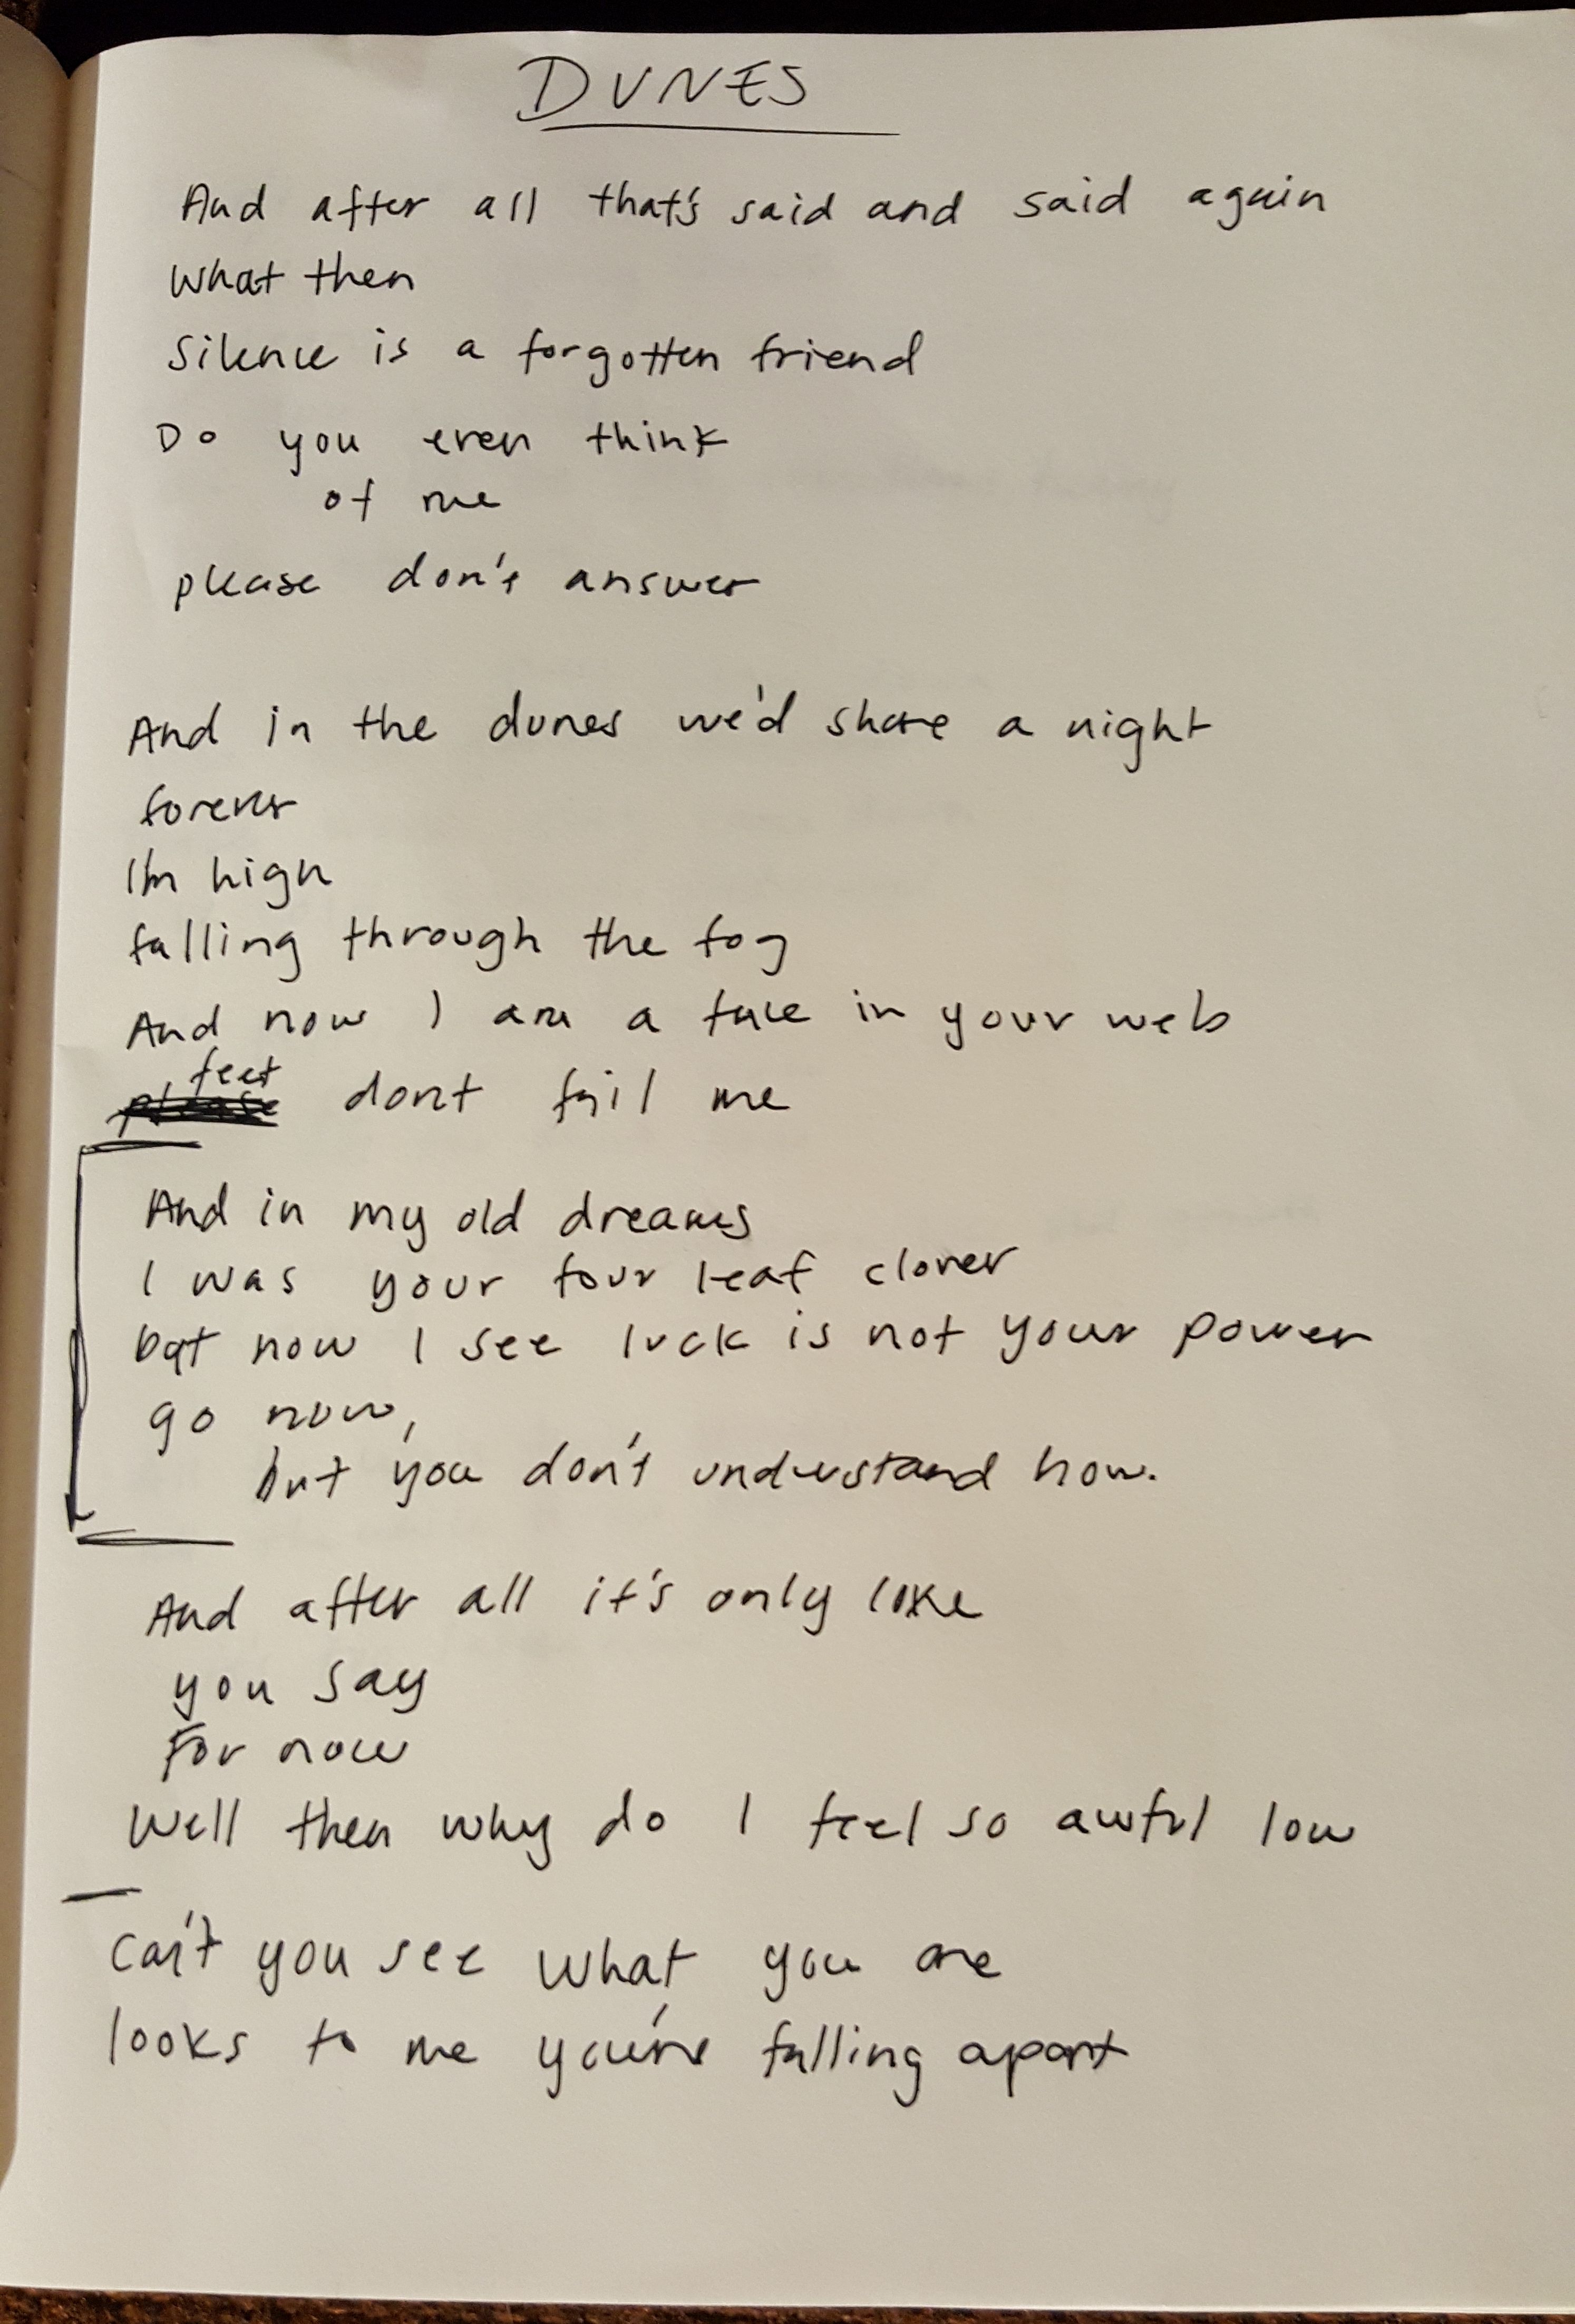 DUNES
And after all that's said and said again
What then
Silence is a forgotten friend
Do you even think
of me
please don't answer
And in the dunes we'd share a night
forever
I'm high
falling through the fog
And now I am a face in your web
feet
please dont fail me
And in my old dreams
I was your four leaf clover
but now I see luck is not your power
go now,
but you don't understand how.
And after all it's only like
you say
For now
Well then why do I feel so awful low
Can't you see what you are
looks to me you're falling apart